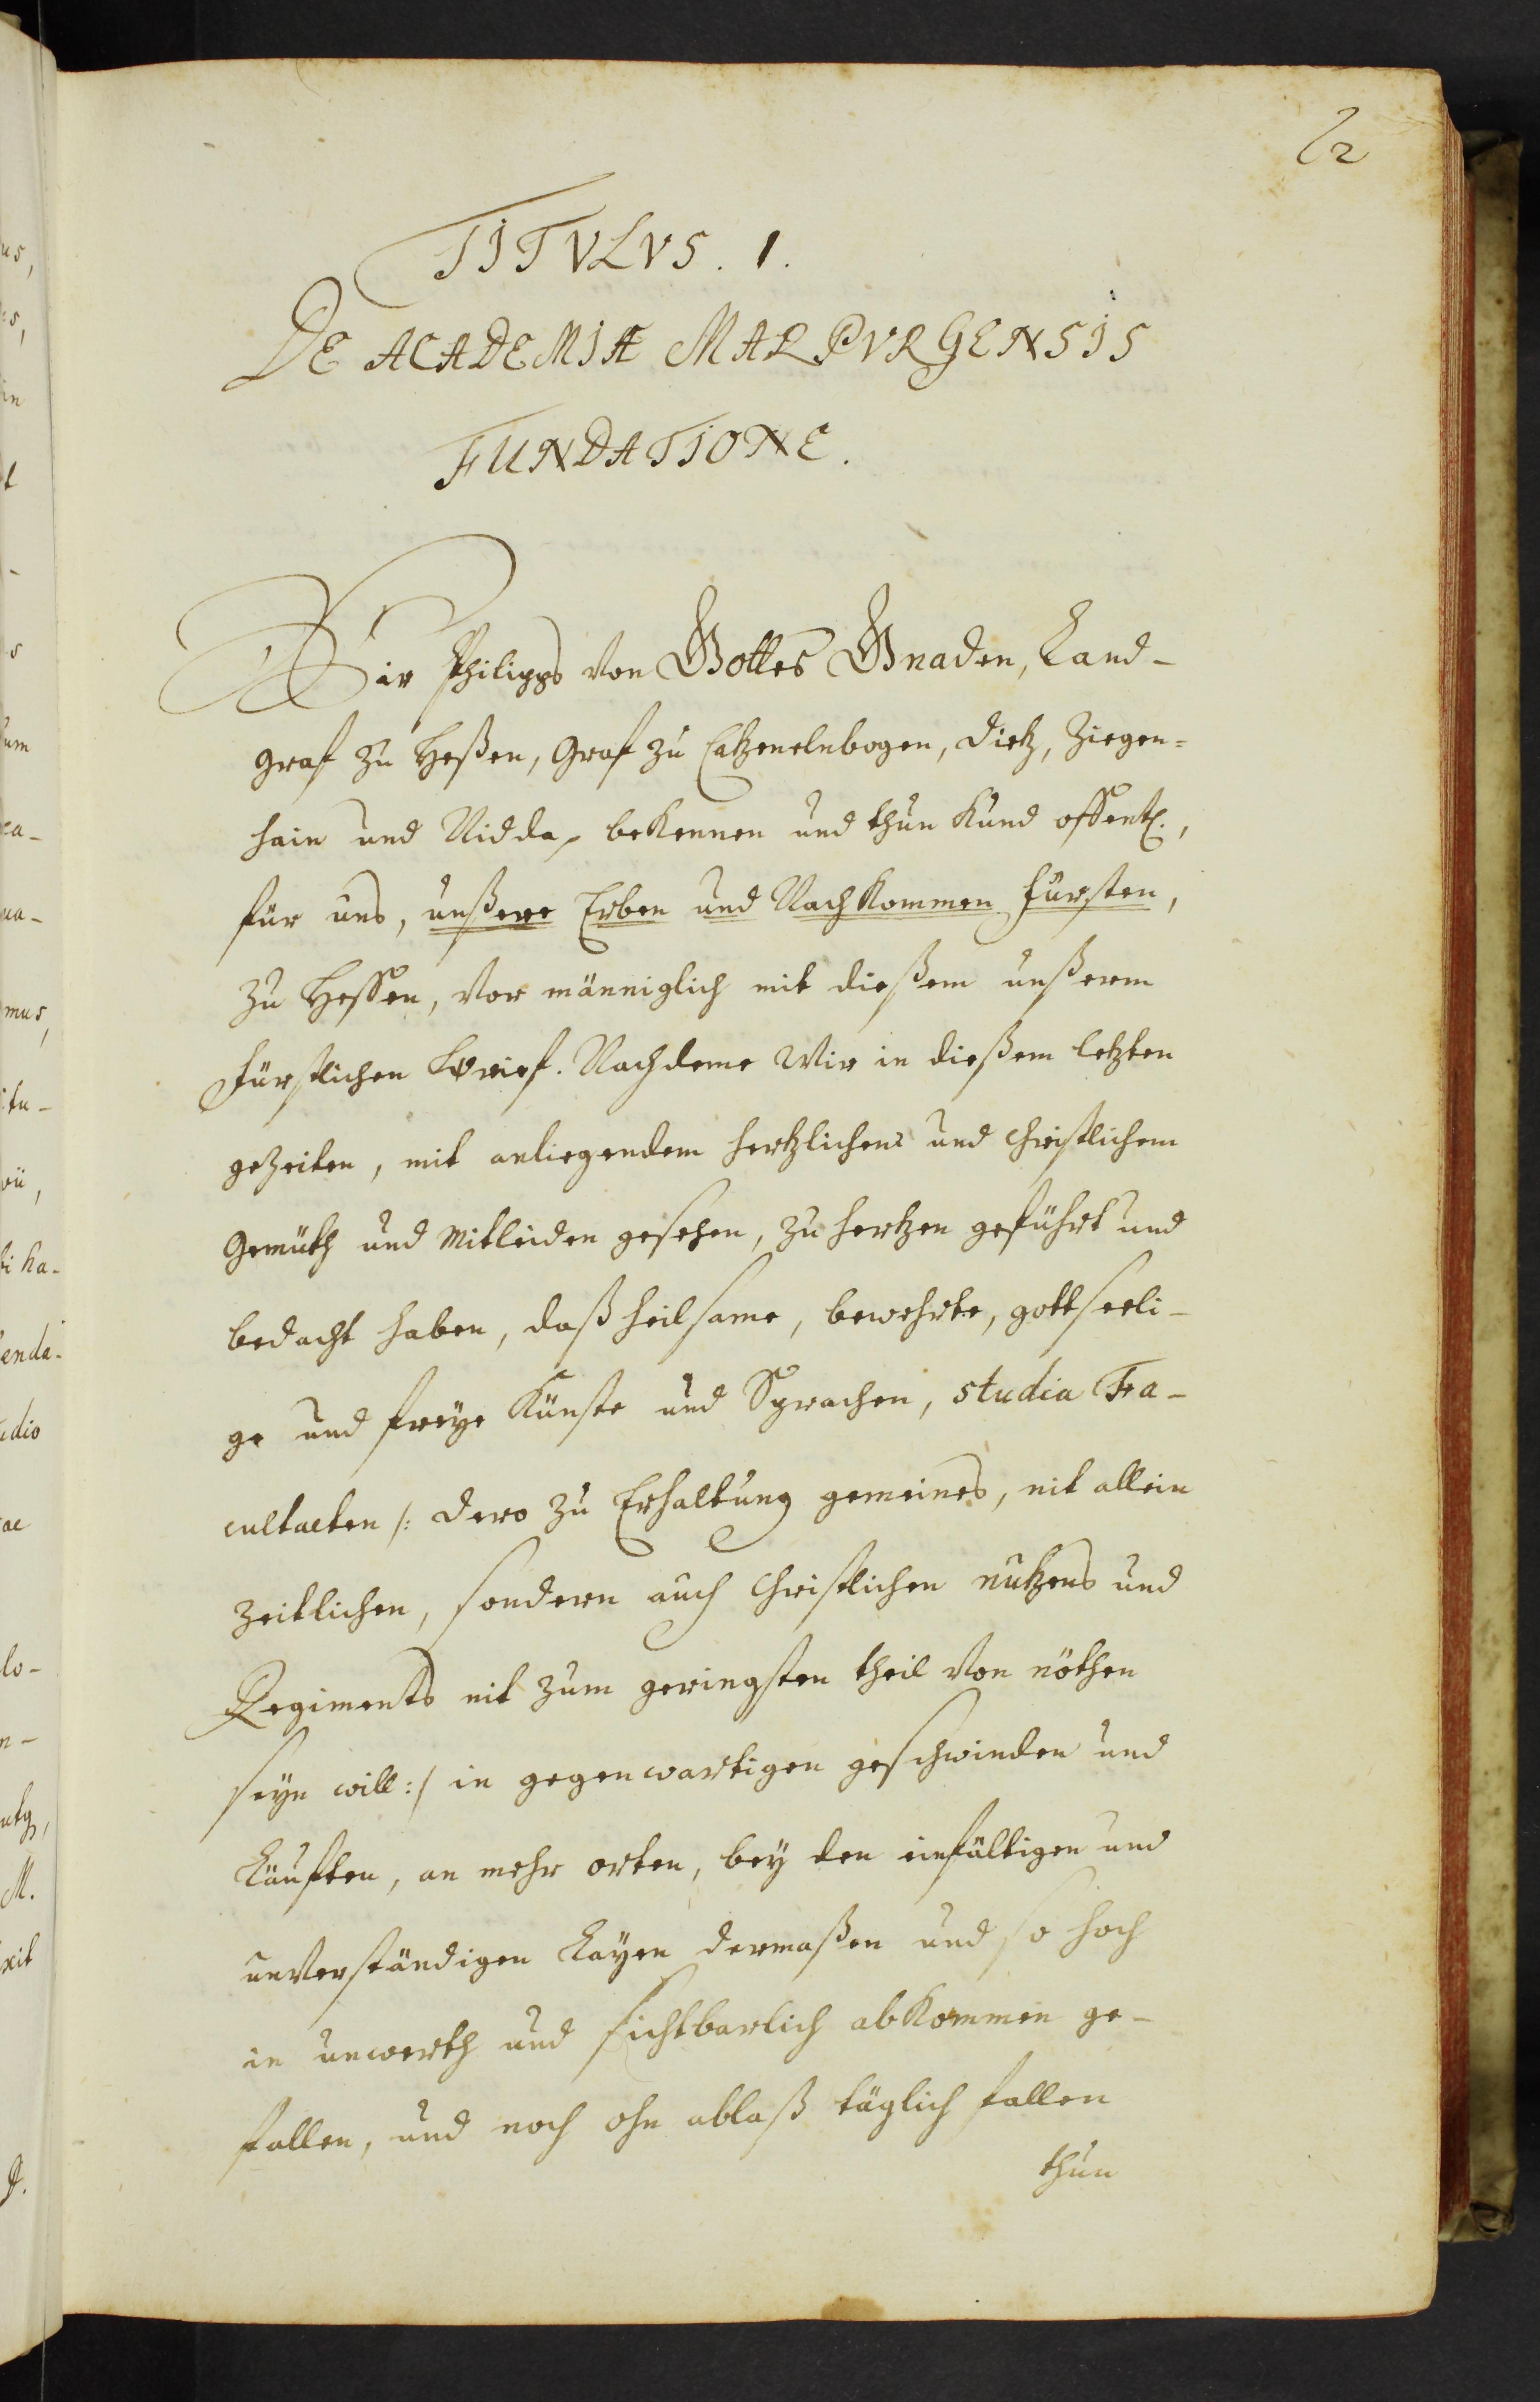 TITVLVS. 1.
DE ACADEMIÆ MARPVRGENSIS
FUNDATIONE.
Wir Philipps von Gottes Gnaden, Land-
graf zu Heßen, Graf zu Catzenelnbogen, Dietz, Ziegen=
hain und Nidda, bekennen und thun Kund offentl.,
für uns, unßere Erben und Nachkommen fürsten,
zu Hessen, vor männiglich mit dießem unßerm
fürstlichen brief. Nachdeme Wir in dießem letzten
gezeiten, mit anliegendem hertzlichem und Christlichem
Gemüth und Mitleiden gesehen, zu hertzen geführt und
bedacht haben, daß heilsame, bewehrte, gottseeli-
ge und freye Künste und Sprachen, studia Fa-
cultaeten /: dero zu Erhaltung gemeines, nit allein
zeitlichen, sondern auch Christlichen nutzens und
Regiments nit zum geringsten theil von nöthen
seyn will :/ in gegenwartigen geschwinden und
Läufften, an mehr orten, bey den einfältigen und
unverständigen Layen dermaßen und so hoch
in unwerth und sichtbarlich abkommen ge-
fallen, und noch ohn ablaß täglich fallen
thun